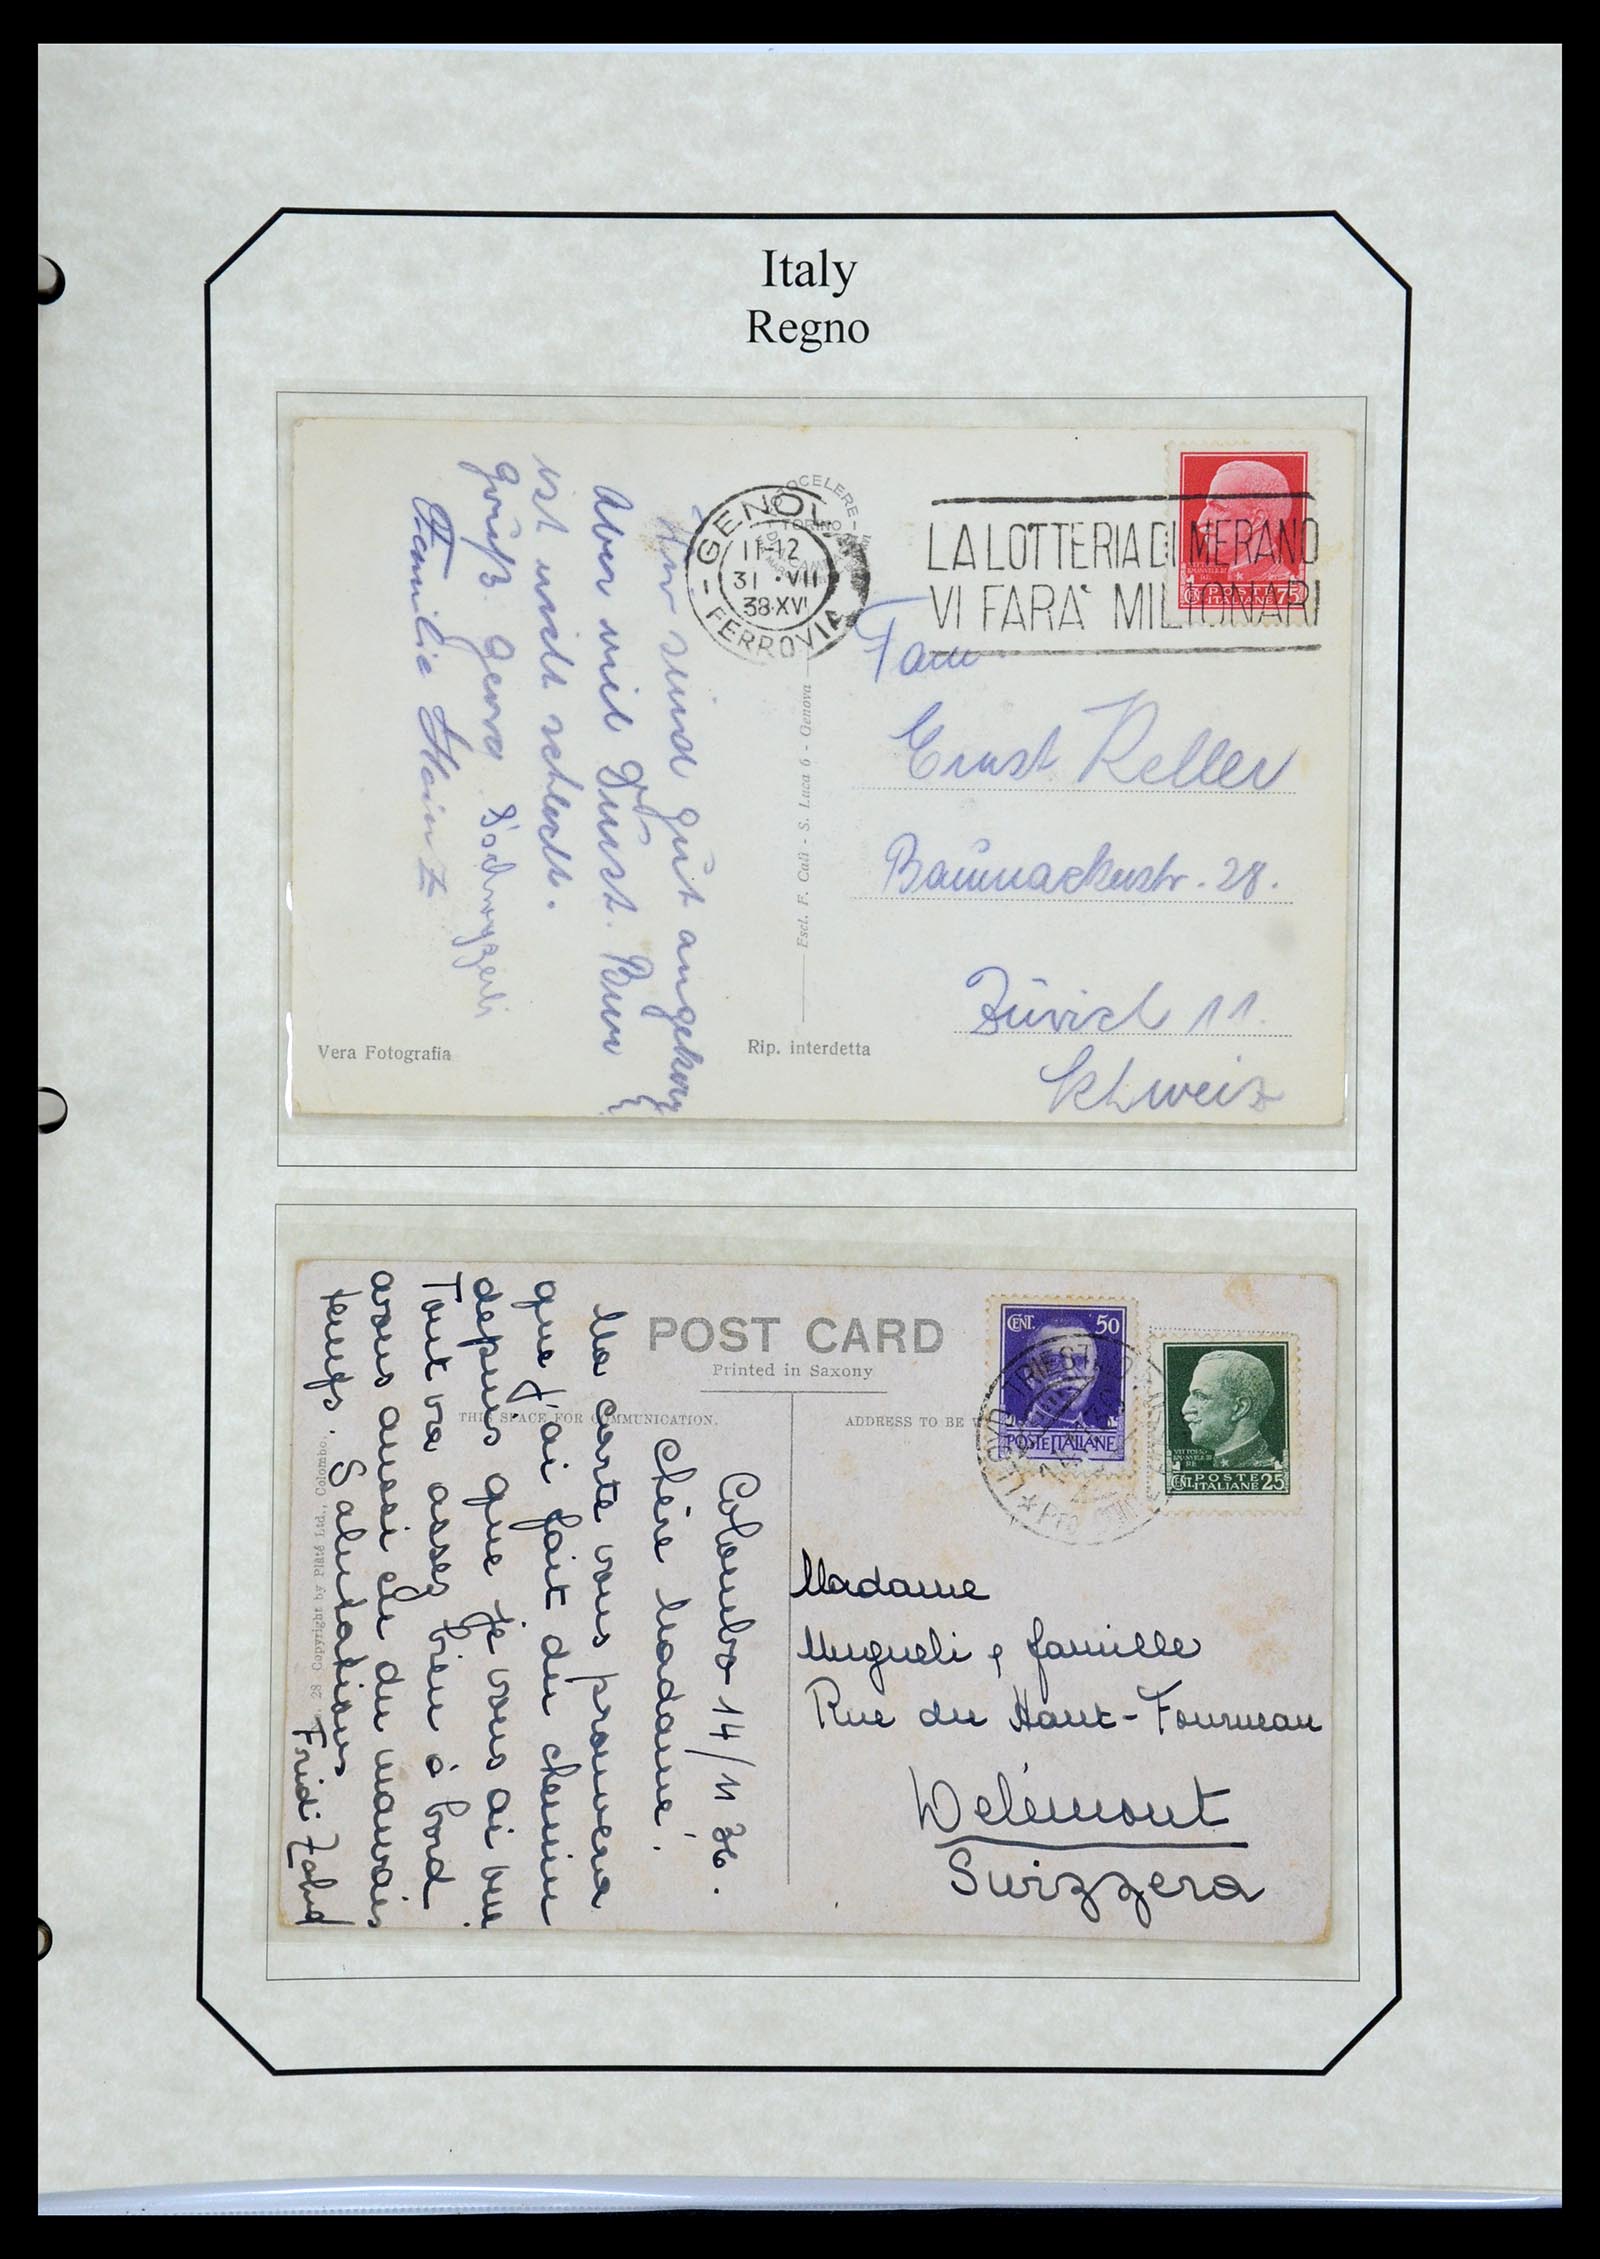 Italy
Regno
GENOVA
FERROVIA
11-12
31 • VII
38•XVI
LA LOTTERIA DI MERANO
VI FARA' MILIONARI
POSTE
ITALIANE 75
Fam
Ernst Keller
Baumackerstr. 28.
Zürich 11.
Schweiz
Wir sind gut angekom
Aber viel Durst. Bum
ist nicht schlecht.
Grüß. Genova
Familie
Vera Fotografia
Rip. interdetta
Escl. F. Calì - S. Luca 6 - Genova
POST CARD
Printed in Saxony
THIS SPACE FOR COMMUNICATION.
ADDRESS TO BE
CENT. 50
POSTE ITALIANE
LLOYD TRIESTINO
VITTORIO
EMANUELE III
RE
POSTE
CENT. ITALIANE 25
Colombo 14/11 36.
Chère Madame!
Ma carte vous prouvera
que j'ai fait du chemin
depuis que je vous ai vue.
Tout va assez bien à bord
avons aussi eu du mauvais
temps. Salutations
Fridi
28 Copyright by Plâté Ltd., Colombo.
Madame
Mugueli & famille
Rue du Haut-Fourneau
Delémont
Svizzera